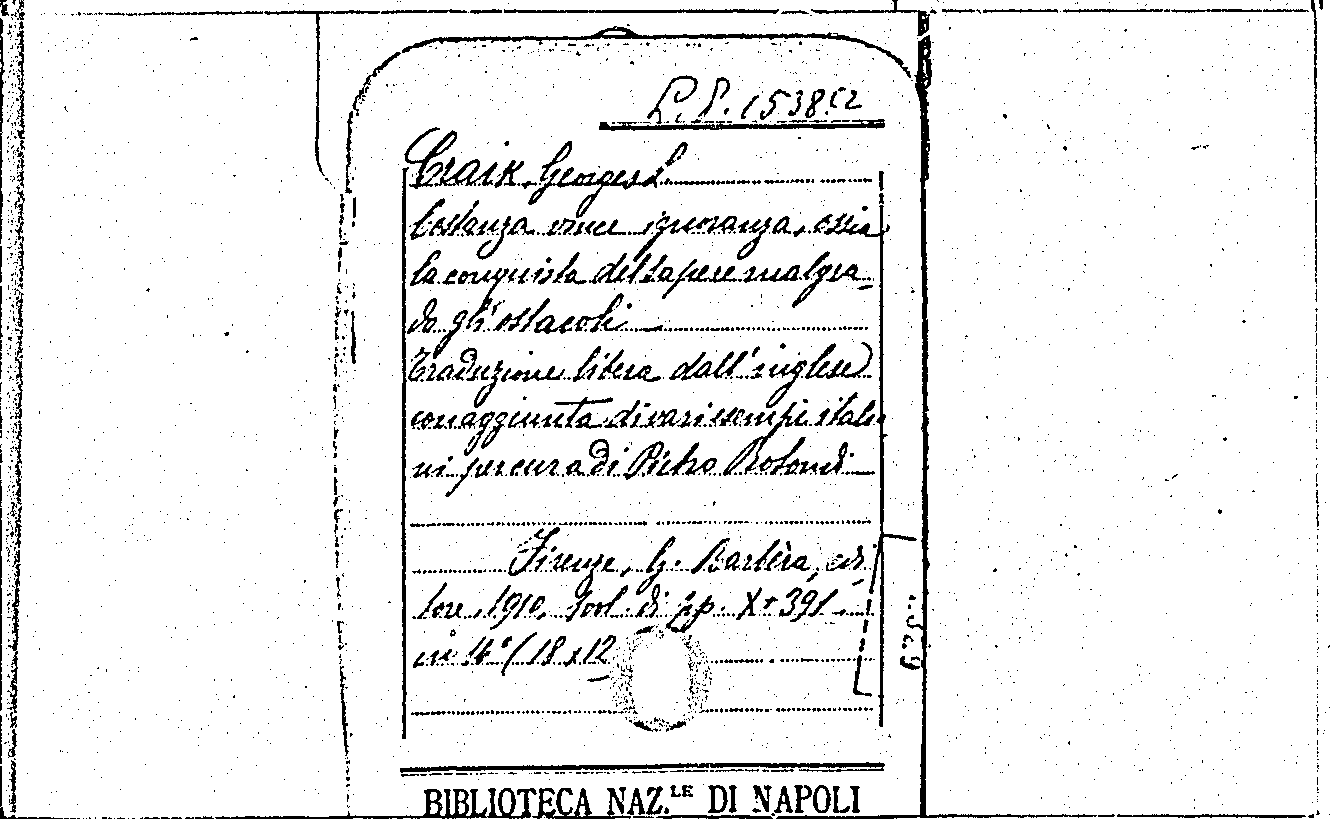 L.P. 1538.52
Craik Georges L.
Costanza vince ignoranza, ossia
la conquista del sapere malgra-
do gli ostacoli
Traduzione libera dall'inglese
con aggiunta di vari esempi italia
ni per cura di Pietro Rotondi
Firenze, G. Barbèra, edi-
tore, 1910, 1vol. di pp. X+391.
in 14° (18x12
BIBLIOTECA NAZ.LE DI NAPOLI